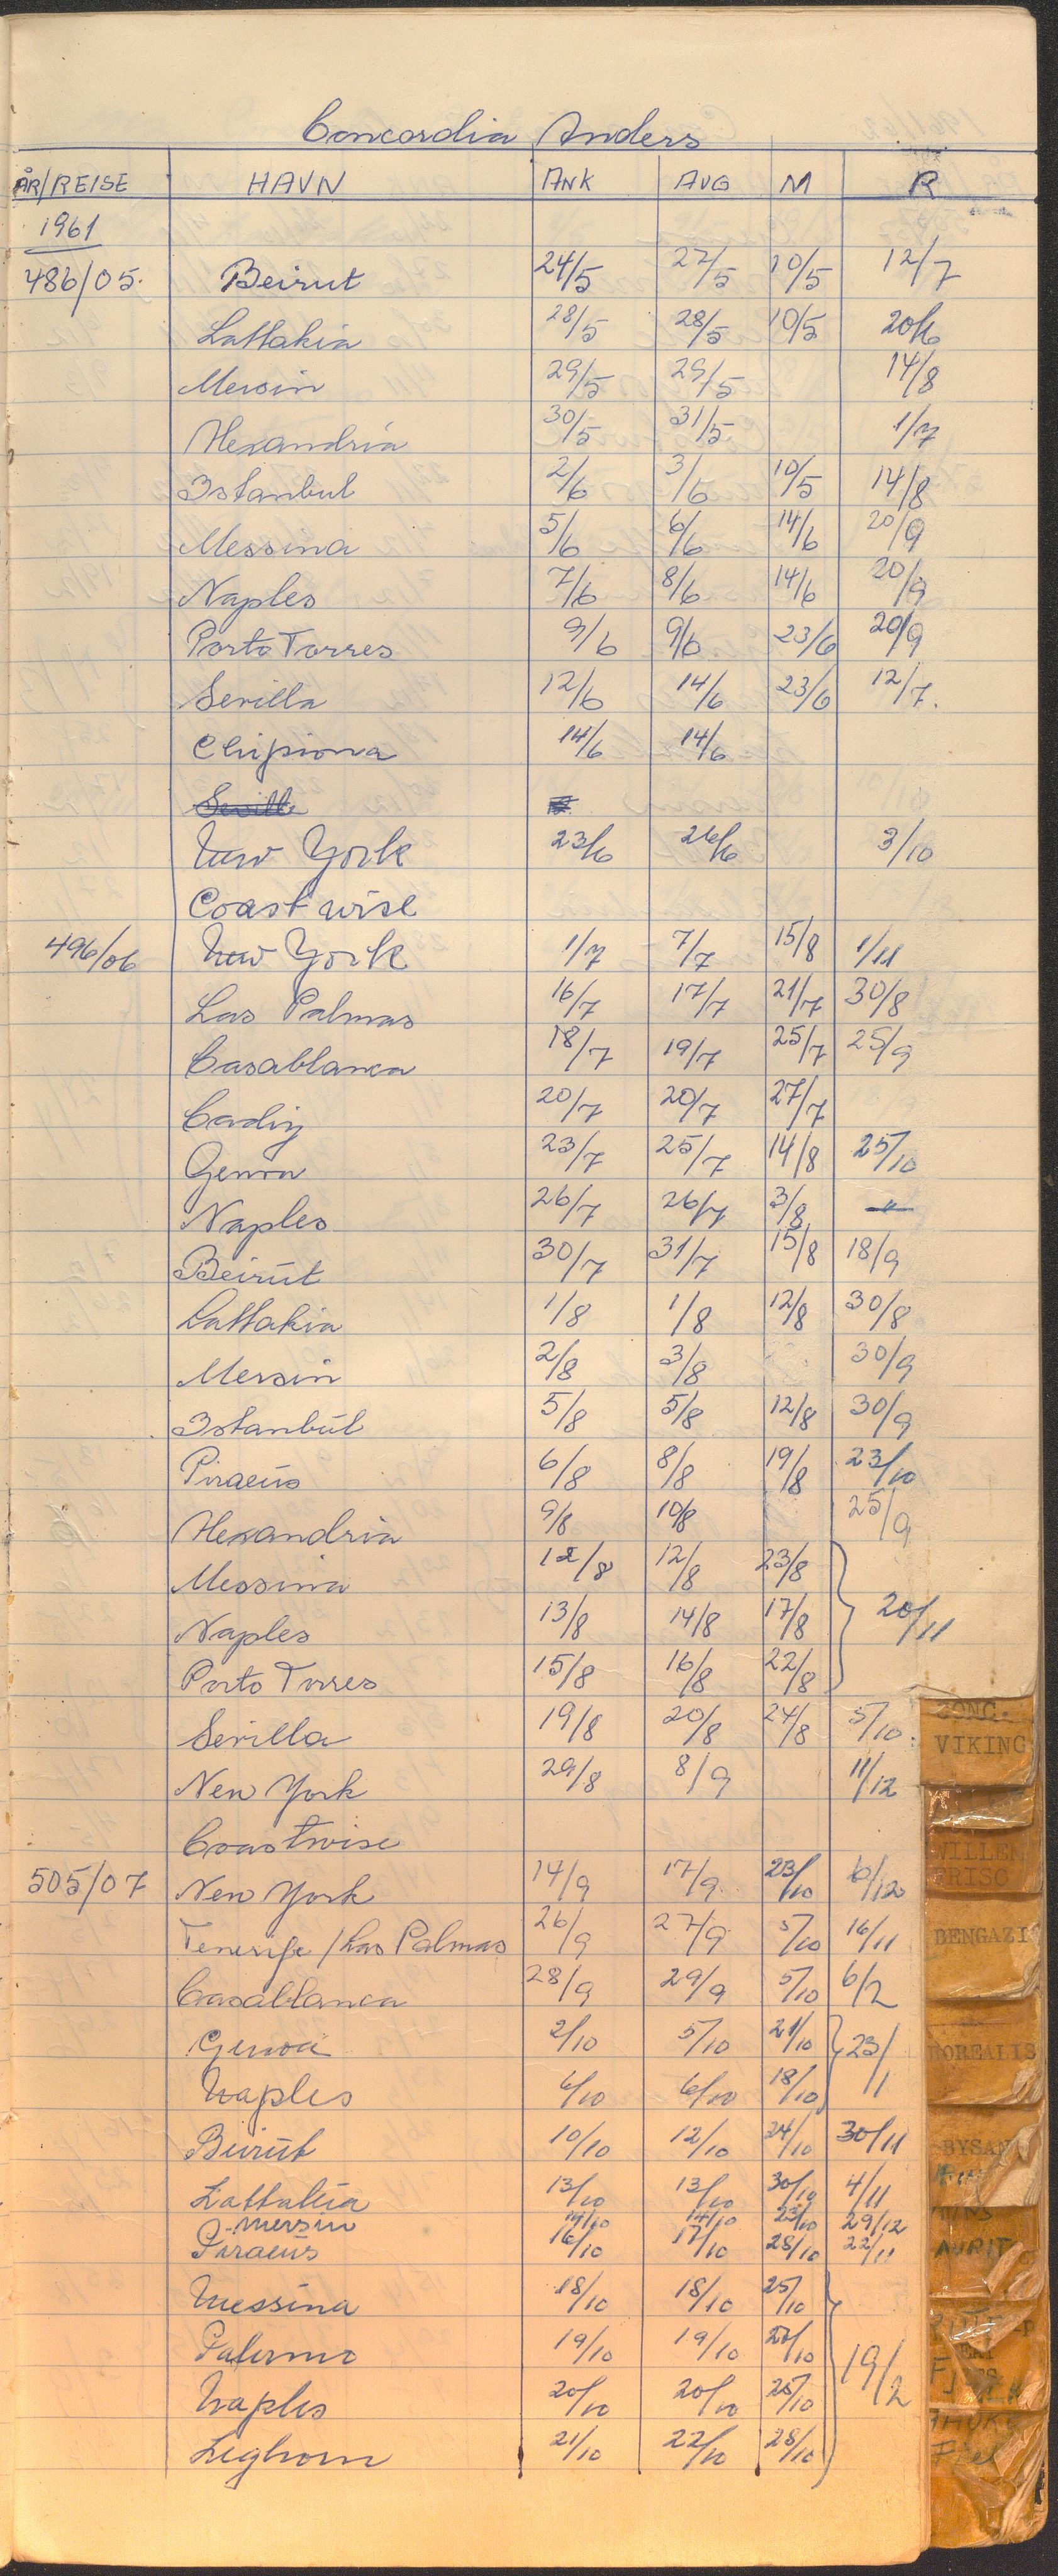 Concordia Anders
ÅR/REISE HAVN ANK AVG M R
1961
486/05. Beirut 24/5 27/5 10/5 12/7
Lattakia 28/5 28/5 10/5 20/6
Mersin 29/5 29/5 14/8
Alexandria 30/5 31/5 1/7
Istanbul 2/6 3/6 10/5 14/8
Messina 5/6 6/6 14/6 20/9
Naples 7/6 8/6 14/6 20/9
Porto Torres 9/6 9/6 23/6 20/9
Sevilla 12/6 14/6 23/6 12/7.
Chipiona 14/6 14/6
Seville
New York 23/6 26/6 3/10
Coastwise
496/06 New York 1/7 7/7 15/8 1/11
Las Palmas 16/7 17/7 21/7 30/8
Casablanca 18/7 19/7 25/7 25/9
Cadiz 20/7 20/7 27/7
Genoa 23/7 25/7 14/8 25/10
Naples 26/7 26/7 3/8 "
Beirut 30/7 31/7 15/8 18/9
Lattakia 1/8 1/8 12/8 30/8
Mersin 2/8 3/8 30/9
Istanbul 5/8 5/8 12/8 30/9
Piraeus 6/8 8/8 19/8 23/10
Alexandria 9/8 10/8 25/9
Messina 12/8 12/8 23/8
Naples 13/8 14/8 17/8 20/11
Porto Torres 15/8 16/8 22/8
Sevilla 19/8 20/8 24/8 5/10
New York 29/8 8/9 11/12
Coastwise
505/07 New York 14/9 17/9 23/10 6/12
Tenerife / Las Palmas 26/9 27/9 5/10 16/11
Casablanca 28/9 29/9 5/10 6/2
Genoa 2/10 5/10 21/10 23/1
Naples 6/10 6/10 18/10
Beirut 10/10 12/10 24/10 30/11
Lattakia 13/10 13/10 30/10 4/11
Mersin 14/10 14/10 23/10 29/12
Piraeus 16/10 17/10 28/10 22/11
Messina 18/10 18/10 25/10
Palermo 19/10 19/10 19/2
Naples 20/10 20/10 25/10
Leghorn 21/10 22/10 28/10
CONC.
VIKING
WILLEM
FRISO
BENGAZI
BOREALIS
BYSAN